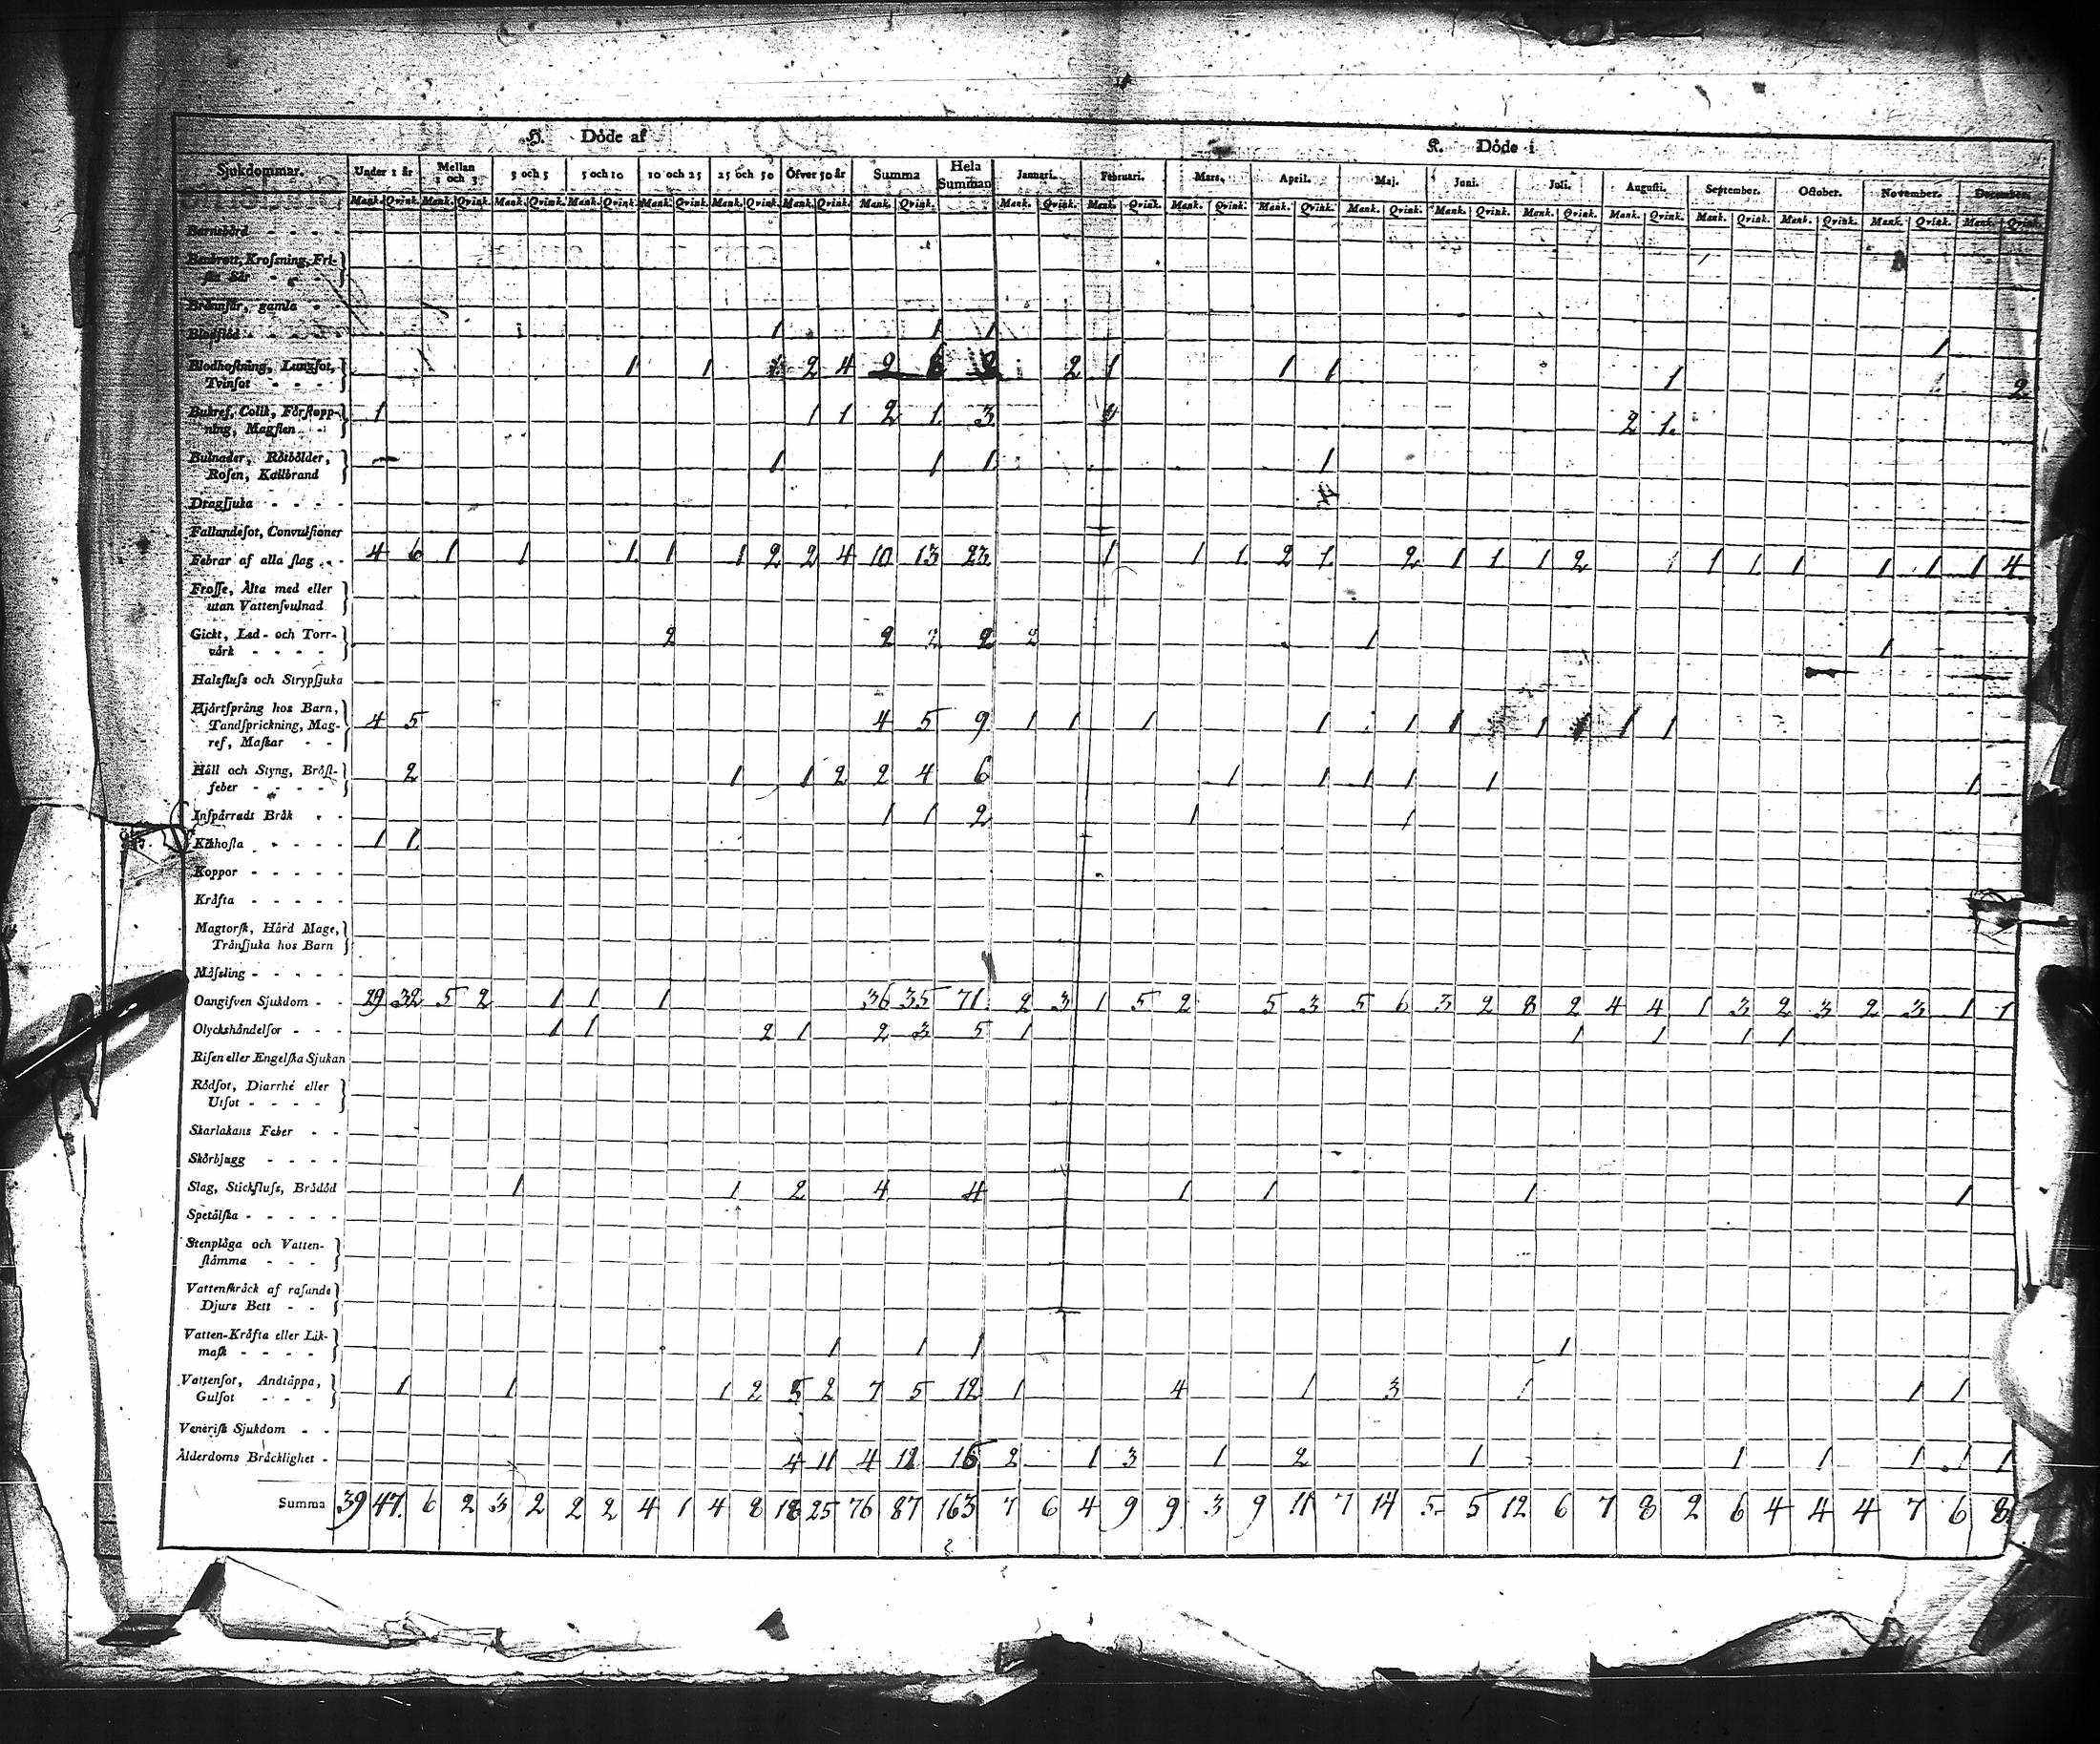 H. Döde af
K. Döde i
Sjukdommar. Under 1 år Mellan 1 och 3 3 och 5 5 och 10 10 och 25 25 och 50 Öfver 50 år Summa Hela Summan Januari. Februari. Mars. April. Maj. Juni. Juli. Augusti. September. October. November. December.
Mank. Qvink. Mank. Qvink. Mank. Qvink. Mank. Qvink. Mank. Qvink. Mank. Qvink. Mank. Qvink. Mank. Qvink. Mank. Qvink. Mank. Qvink. Mank. Qvink. Mank. Qvink. Mank. Qvink. Mank. Qvink. Mank. Qvink. Mank. Qvink. Mank. Qvink. Mank. Qvink. Mank. Qvink. Mank. Qvink.
Barnsbörd - - - -
Benbrott, Krosning, Fri-
ska Sår - - -
Brännsår, gamla -
Blodflöd - - - - 1 1 1 1
Blodhostning, Lungsot, 1 1 2 4 2 2 1 1 1 1
Tvinsot - - - - 2
Bukref, Colik, Förstopp- 1 1 1 2 1 3
ning, Magsten - - 2 1
Bulnader, Rötbölder, 1 1 1 1
Rosen, Kallbrand
Dragsjuka - - - -
Fallandesot, Convulsioner
Febrar af alla slag - - 4 6 1 1 1 1 1 2 2 4 10 13 23 1 1 1 2 1 2 1 1 1 2 1 1 1 1 1 1 1 4
Frosse, Älta med eller
utan Vattensvulnad
Gickt, Led- och Torr- 2 2 2 2 1 1
värk - - - -
Halsfluss och Strypsjuka
Hjärtsprång hos Barn,
Tandsprickning, Mag- 4 5 4 5 9 1 1 1 1 1 1 1 1 1
ref, Maskar - -
Håll och Styng, Bröst- 2 1 1 2 2 4 6 1 1 1 1 1
feber - - - - 1
Inspärradt Bråk - - 1 1 2 1 1
Kikhosta - - - - - 1 1
Koppor - - - - -
Kräfta - - - - -
Magtorsk, Hård Mage,
Trånsjuka hos Barn
Mässling - - - - -
Oangifven Sjukdom - - 29 32 5 2 1 1 1 36 35 71 2 3 1 5 2 5 3 5 6 3 2 8 2 4 4 1 3 2 3 2 3 1 1
Olyckshändelsor - - - 1 1 2 1 2 3 5 1 1 1 1 1
Risen eller Engelska Sjukan
Rödsot, Diarrhé eller
Utsot - - - -
Skarlakans Feber - -
Skörbjugg - - - -
Slag, Stickfluss, Brådöd 1 1 2 4 4 1 1 1 1
Spetälska - - - - -
Stenplåga och Vatten-
stämma - - -
Vattenskräck af rasande
Djurs Bett - -
Vatten-Kräfta eller Lik- 1 1 1 1
mask - - - -
Vattensot, Andtäppa, 1 1 1 2 5 2 7 5 12 1 4 1 3 1 1 1
Gulsot - - -
Venerisk Sjukdom - -
Ålderdoms Bräcklighet - 4 11 4 11 15 2 1 3 1 2 1 1 1 1 1 1
Summa 39 47 6 2 3 2 2 2 4 1 4 8 18 25 76 87 163 7 6 4 9 9 3 9 11 7 14 5 5 12 6 7 8 2 6 4 4 4 7 6 8